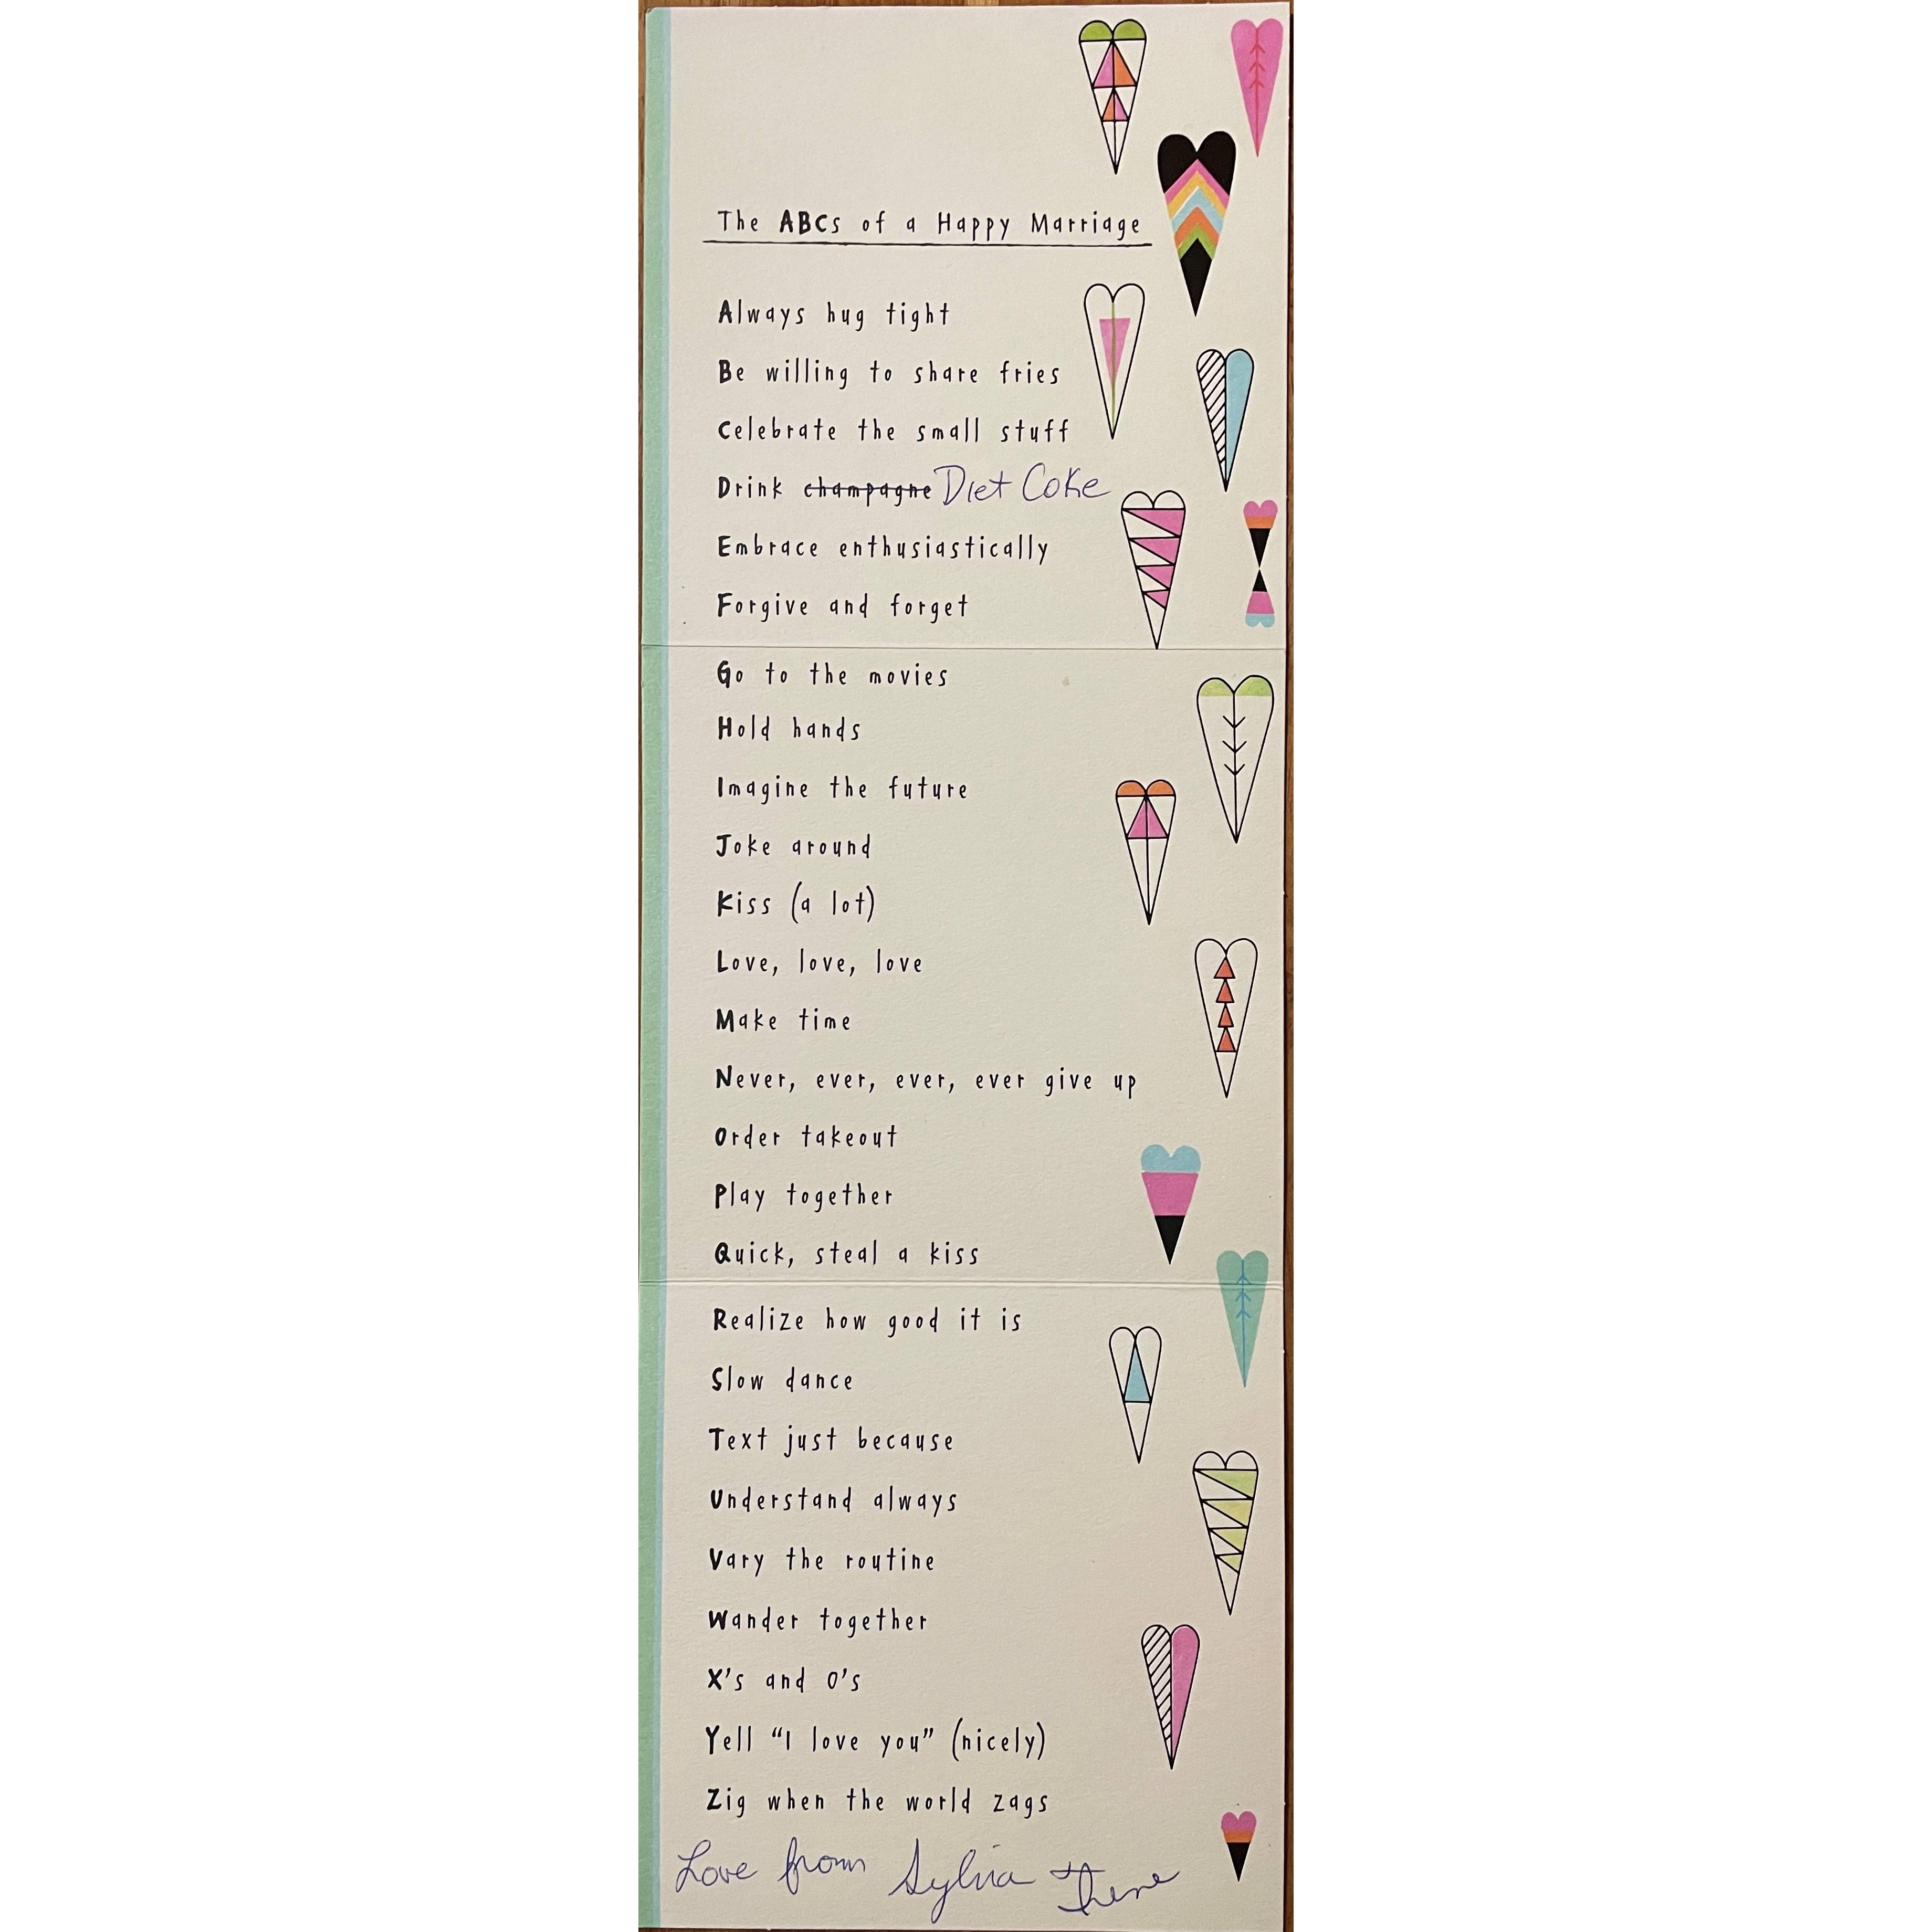 The ABCs of a Happy Marriage
Always hug tight
Be willing to share fries
Celebrate the small stuff
Drink champagne Diet Coke
Embrace enthusiastically
Forgive and forget
Go to the movies
Hold hands
Imagine the future
Joke around
Kiss (a lot)
Love, love, love
Make time
Never, ever, ever, ever give up
Order takeout
Play together
Quick, steal a kiss
Realize how good it is
Slow dance
Text just because
Understand always
Vary the routine
Wander together
X's and O's
Yell “I love you” (nicely)
Zig when the world zags
Love from Sylvia +